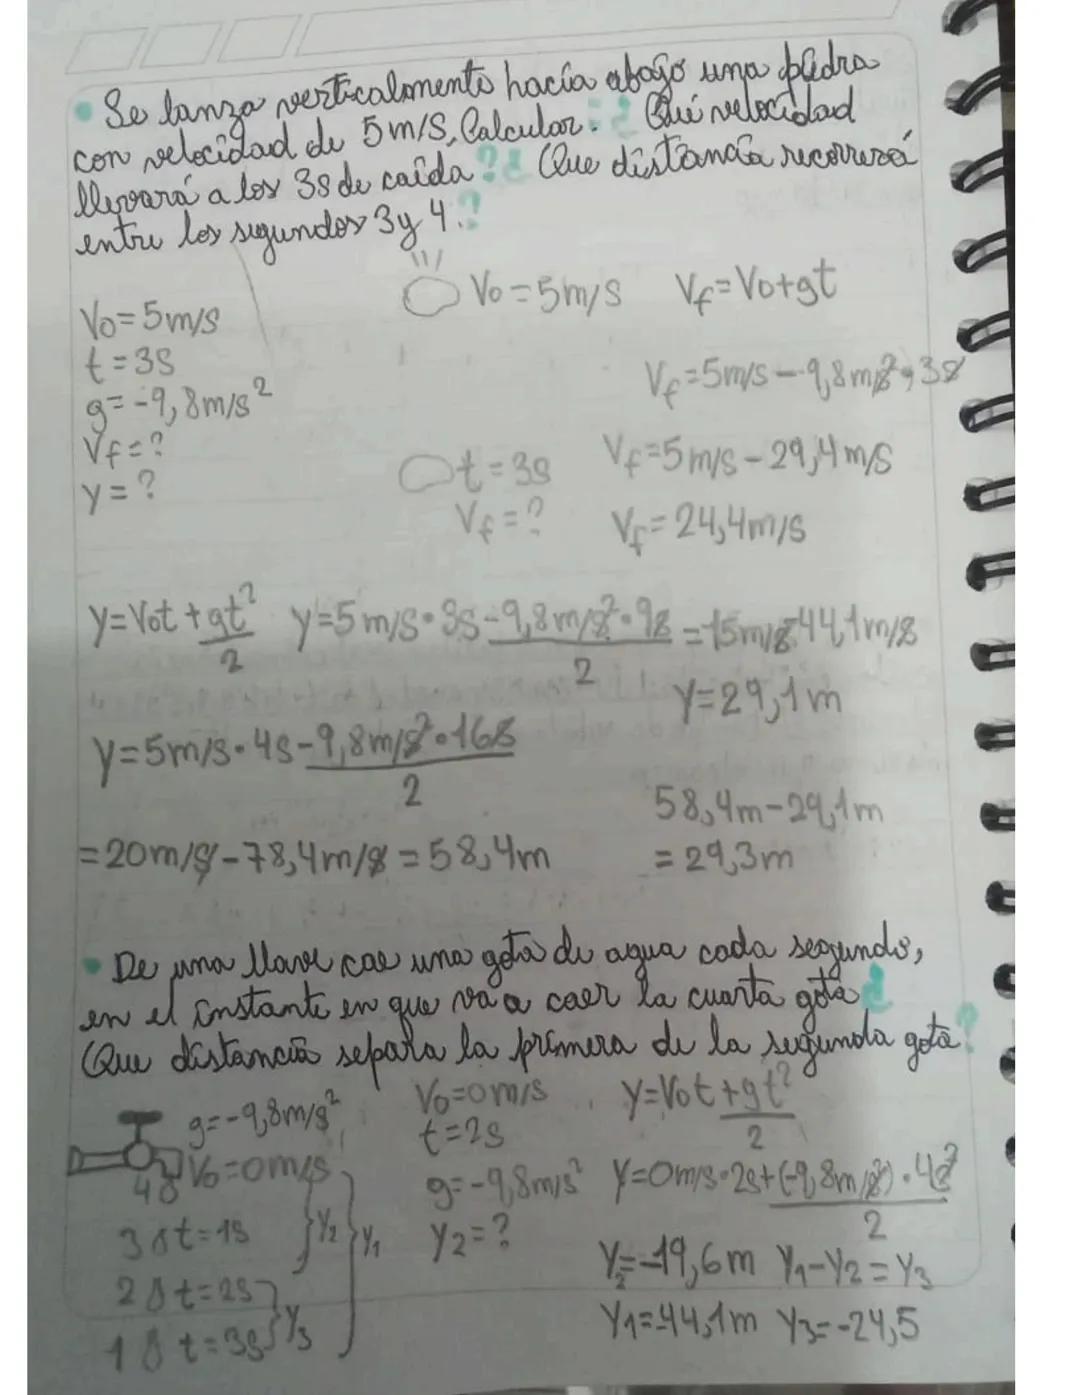 Se lanza verticalmente hacía abajo una piedra
con velocidad de 5m/s, Calcular. ¿Qué velocidad
llevará a los 3s de caída? ¿Que distancia recorrerá
entre los segundos 3 y 4.?
V₀=5m/s Vf=V₀+gt
V₀=5m/s
t=3s
g=-9,8m/s²
Vf=?
y=?
Vf=5m/s-9,8m/s²·3s
t=3s Vf=5m/s-29,4m/s
Vf=? Vf=24,4m/s
y=V₀t+gt²/2 y=5m/s·3s-9,8m/s²·9s/2=15m/s-44,1m/s
y=29,1m
y=5m/s·4s-9,8m/s²·16s/2
58,4m-29,1m
=20m/s-78,4m/s=58,4m =29,3m
De una llave cae una gota de agua cada segundo,
en el instante en que va a caer la cuarta gota ¿
Que distancia separa la primera de la segunda gota?
g=-9,8m/s² V₀=0m/s y=V₀t+gt²/2
V₀=0m/s t=2s
4 g=-9,8m/s² y=0m/s·2s+(-9,8m/s²)·4s²/2
3 t=1s y₂ y₁ y₂=?
y₂=-19,6m y₁-y₂=y₃
2 t=2s
1 t=3s y₃ y₁=-44,1m y₃=-24,5